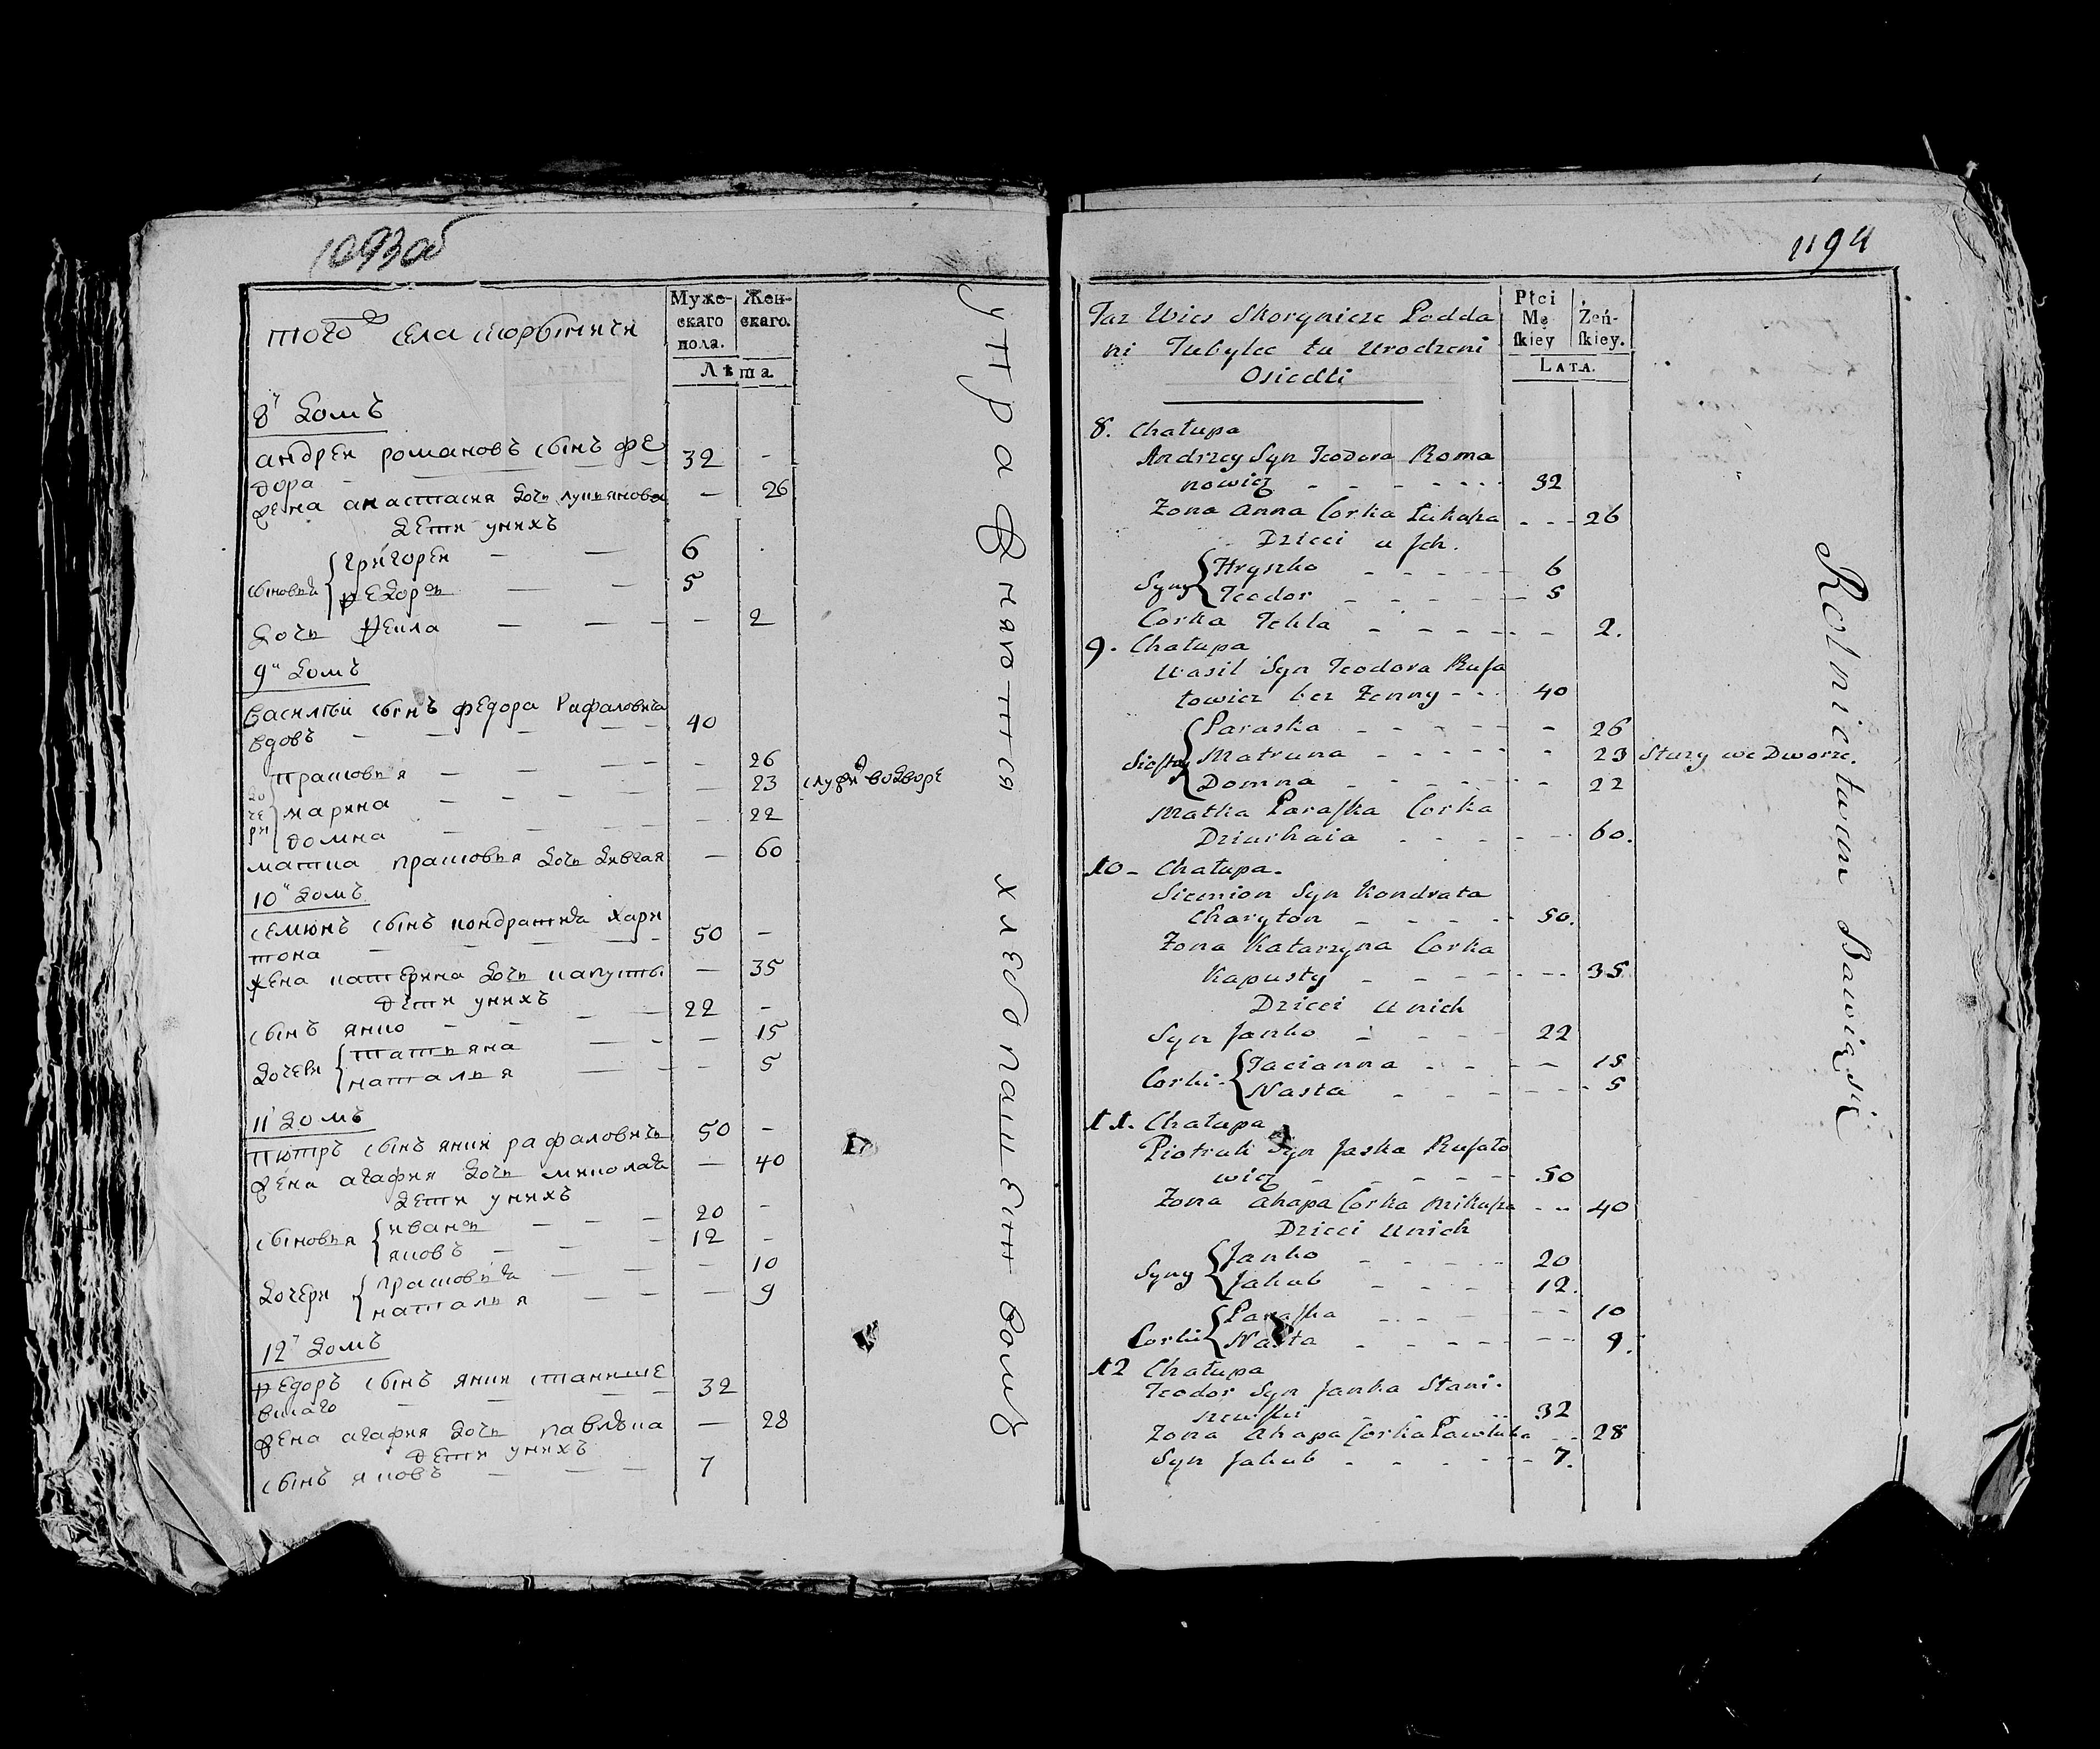 1093об
Муже-
скаго
пола.
Жен-
скаго.
Лѣта
тогож села скорыничи
8й домъ
андреи романовъ сынъ фе
дора 32 -
жена анастасия дочь лукьянова — 26
дети унихъ
сыновья
григореи — — 6
федоръ — — 5
дочь фекла — — — - 2
9й домъ
василий сынъ федора Рафаловича
вдовъ - - - - 40
дочери
прасковья - - - - 26
марина - - - - 23 служи во дворе
домна - - - - 22
матка прасковья дочь — 60
10й домъ
семионъ сынъ кондратия хари
тона - - - - 50 -
жена катерина дочь капусты — 35
дети унихъ
сынъ янко - - - 22 -
дочери
татьяна — - - 15
наталья — - - 5
11й домъ
пиотръ сынъ янки рафаловичъ 50 -
жена агафия дочь миколая — 40
дети унихъ
сыновья
иванъ — - — 20 -
яковъ — - - 12 -
дочери
прасковия — — - 10
наталья — — — 9
12й домъ
федоръ сынъ янки станише
вскаго - - - - 32
жена агафия дочь павлюка — 28
дети унихъ
сынъ яковъ - — — 7
упражняютъся хлебопашенствомъ
1194
Płci
Mę
skiey
Żeń-
skiey.
LATA.
Taz Wies Skorynicze Podda
ni Tubylec tu Urodzeni
Osiedli
8. Chałupa
Andrzey Syn Teodora Roma
nowicz - - - - - - 32
Zona Anna Corka Łukasza - - - 26
Dzieci u Jch.
Syny
Hryszko - - - - - 6
Teodor - - - - - 5
Corka Tekla - - - - - - 2.
9. Chałupa
Wasil Syn Teodora Rafa
łowicz bez Zenny - - - 40
Siostry
Paraska - - - - - 26
Matruna - - - - - 23 Słuzy we Dworze.
Domna - - - - - 22
Matka Paraska Corka
- - - - - 60.
10 - Chałupa.
Siemion Syn Kondrata
Charyton - - - - - 50.
Zona Katarzyna Corka
Kapusty - - - - - - 35
Dzieci Unich
Syn Janko - - - - 22
Corki
Tacianna - - - - - 15
Nasta - - - - - - 5
11. Chałupa
Piotruk Syn Jaska Rafało
wicz - - - - - 50
Zona Ahapa Corka - - 40
Dzieci Unich
Syny
Janko - - - - - 20
Jakub - - - - - 12.
Corki
Paraska - - - - - 10
Nasta - - - - - - 9.
12 Chałupa
Teodor Syn Janka Stani-
szewski - - - - 32
Zona Ahapa Corka Pawluka - - 28
Syn Jakub - - - - - - 7.
Rolnictwem Bawią się